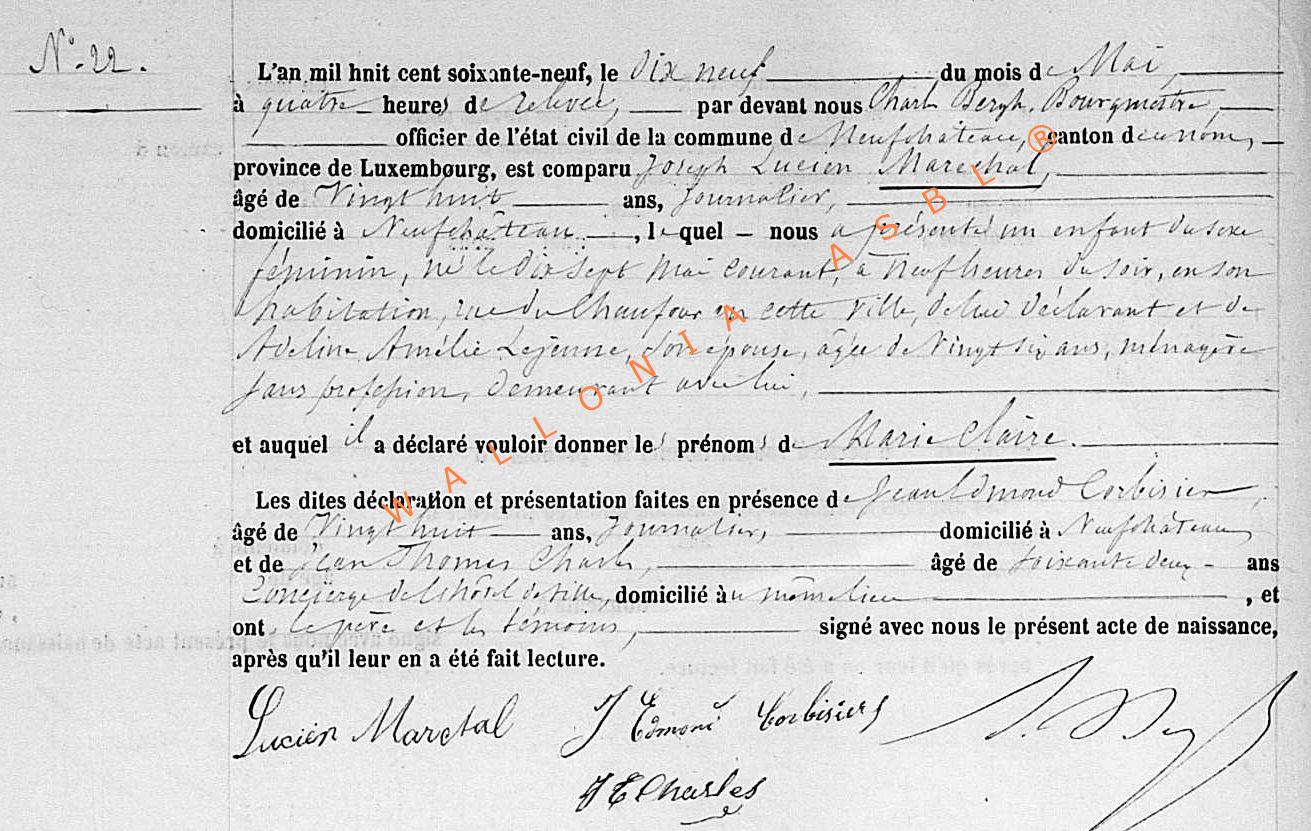 N° 22.
L'an mil huit cent soixante-neuf, le dix neuf du mois de Mai,
à quatre heures de relevée, par devant nous Charles Bergh, Bourgmestre,
officier de l'état civil de la commune de Neufchâteau, canton du même nom,
province de Luxembourg, est comparu Joseph Lucien Marechal,
âgé de Vingt huit ans, Journalier,
domicilié à Neufchâteau, lequel nous a présenté un enfant du sexe
féminin, né le dix sept Mai courant, à neuf heures du soir, en son
habitation, rue du Chaufour en cette ville, de lui déclarant et de
Adeline Amélie Lejeune, son épouse, agée de Vingt six ans, ménagère
sans profession, demeurant avec lui,
et auquel il a déclaré vouloir donner les prénoms de Marie Claire.
Les dites déclaration et présentation faites en présence de Jean Edmond Corbisier,
âgé de Vingt huit ans, Journalier, domicilié à Neufchâteau,
et de Jean Thomas Charles, âgé de soixante deux ans
Concierge de l'hôtel de ville, domicilié au même lieu, et
ont le père et les témoins, signé avec nous le présent acte de naissance,
après qu'il leur en a été fait lecture.
Lucien Marechal J Edmond Corbisiers
J T Charles
WALLONIA ASBL ®